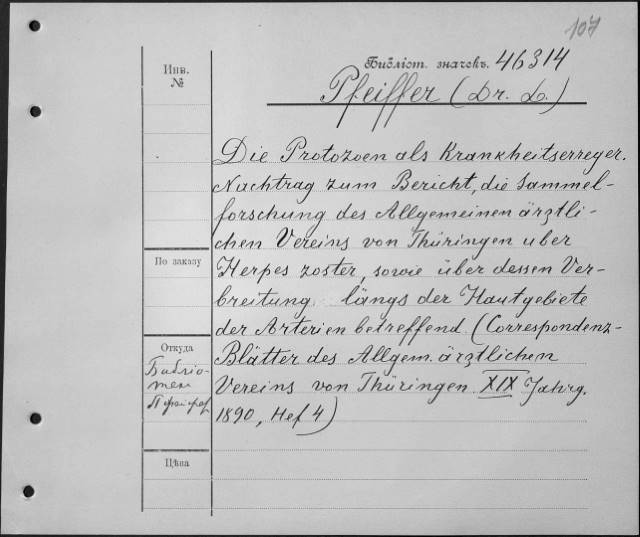 107
Библіот. значекъ. 46314
Pfeiffer (Dr. L.)
Инв.
№
Die Protozoen als Krankheitserreger.
Nachtrag zum Bericht, die Sammel-
forschung des Allgemeinen ärztli-
chen Vereins von Thüringen uber
По заказу
Herpes zoster, sowie über dessen Ver-
breitung längs der Hautgebiete
der Arterien betreffend (Correspondenz-
Откуда
Библіо-
тек
Blätter des Allgem. ärztlichen
Vereins von Thüringen XIX Jahrg.
1890, Hef 4)
Цѣна